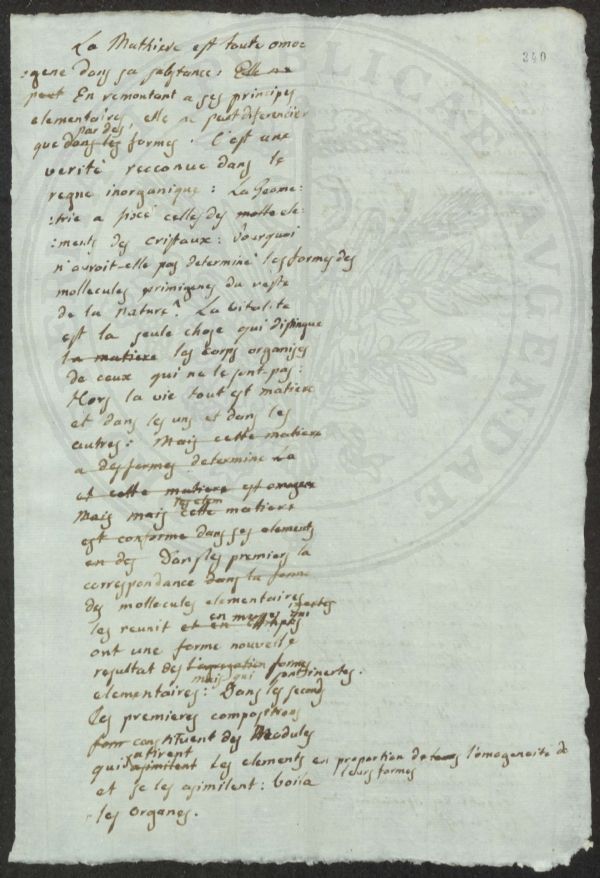 240
La Mathiere est toute omo:
:gene dans sa substance: Elle ne
peut En remontant a ses principes
elementaires, elle ne peut diferencier
par des
que dans les formes. C'est une
verité reconnue dans le
regne inorganique: La Geome:
:trie a fixé celles des molte ele:
:ments des cristaux: Pourquoi
n'auroit-elle pas determiné les formes des
mollecules primigenes du reste
de la nature? La vitalite
est la seule chose qui distingue
la matiere les corps organises
de ceux qui ne le sont pas:
Hors la vie tout est matiere
et dans les uns et dans les
autres: Mais cette matiere
a des formes determiné La
et cette matiere est omogene
Mais mais cette matiere
est conforme dans ses elements
en des Dans les premiers la
correspondance dans la forme
des mollecules elementaires
inertes
les reunit et en masses qui
ont une forme nouvelle
resultat des l'agregation formes
mais qui sont inertes.
elementaires: Dans les second
les premieres compositions
form constituent des Modules
atirent
qui asimilent les elements en proportion de leurs l'omogeneité de
leurs formes
et se les asimilent: voila
les organes.
PUBLICAE
AVFENDAE